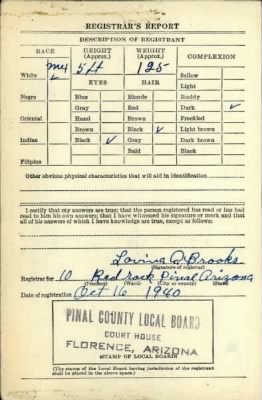 REGISTRAR'S REPORT
DESCRIPTION OF REGISTRANT
RACE HEIGHT (Approx.) WEIGHT (Approx.) COMPLEXION
White Mex ✓ 5 ft 125 Sallow
EYES HAIR Light
Negro Blue Blonde Ruddy
Gray Red Dark ✓
Oriental Hazel Brown Freckled
Brown Black ✓ Light brown
Indian Black ✓ Gray Dark brown
Bald Black
Filipino
Other obvious physical characteristics that will aid in identification
I certify that my answers are true; that the person registered has read or has had
read to him his own answers; that I have witnessed his signature or mark and that
all of his answers of which I have knowledge are true, except as follows:
Brooks
(Signature of registrar)
Registrar for 10 Red rock Pinal Arizona
(Precinct) (Ward) (City or county) (State)
Date of registration Oct 16 1940
PINAL COUNTY LOCAL BOARD
COURT HOUSE
FLORENCE, ARIZONA
(STAMP OF LOCAL BOARD)
(The stamp of the Local Board having jurisdiction of the registrant
shall be placed in the above space.)